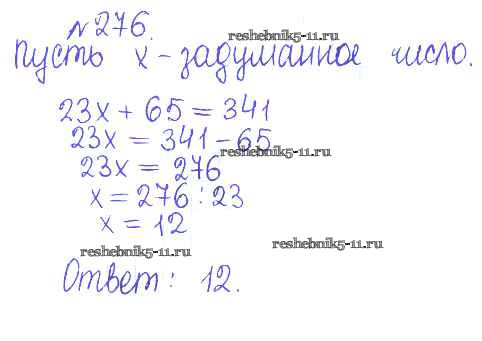 №276.
reshebnik5-11.ru
Пусть х - задуманное число.
23х + 65 = 341
23х = 341 - 65
reshebnik5-11.ru
23х = 276
х = 276 : 23
х = 12
reshebnik5-11.ru
reshebnik5-11.ru
Ответ: 12.